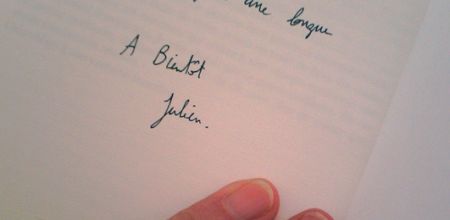 une longue
A Bientôt
Julien.